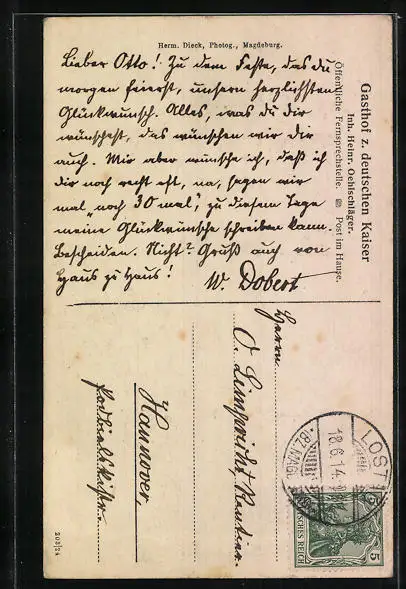 Herm. Dieck, Photog., Magdeburg.
Lieber Otto! Zu dem Feste, das du
morgen feierst, unsern herzlichsten
Glückwunsch. Alles, was du dir
wünschest, das wünschen wir dir
auch. Mir aber wünsche ich, daß ich
dir noch recht oft, na, sagen wir
mal „noch 30 mal", zu diesem Tage
meine Glückwünsche schreiben kann.
Bescheiden. Nicht? Gruß auch von
Haus zu Haus! W. Dobert
Gasthof z. deutschen Kaiser
Inh. Heinr. Oehlschläger.
Öffentliche Fernsprechstelle. Post im Hause.
Herrn
O. Limpricht, Rentier
Hannover
LOST
18.6.14
(BZ. MAGD
DEUTSCHES REICH
5
203124